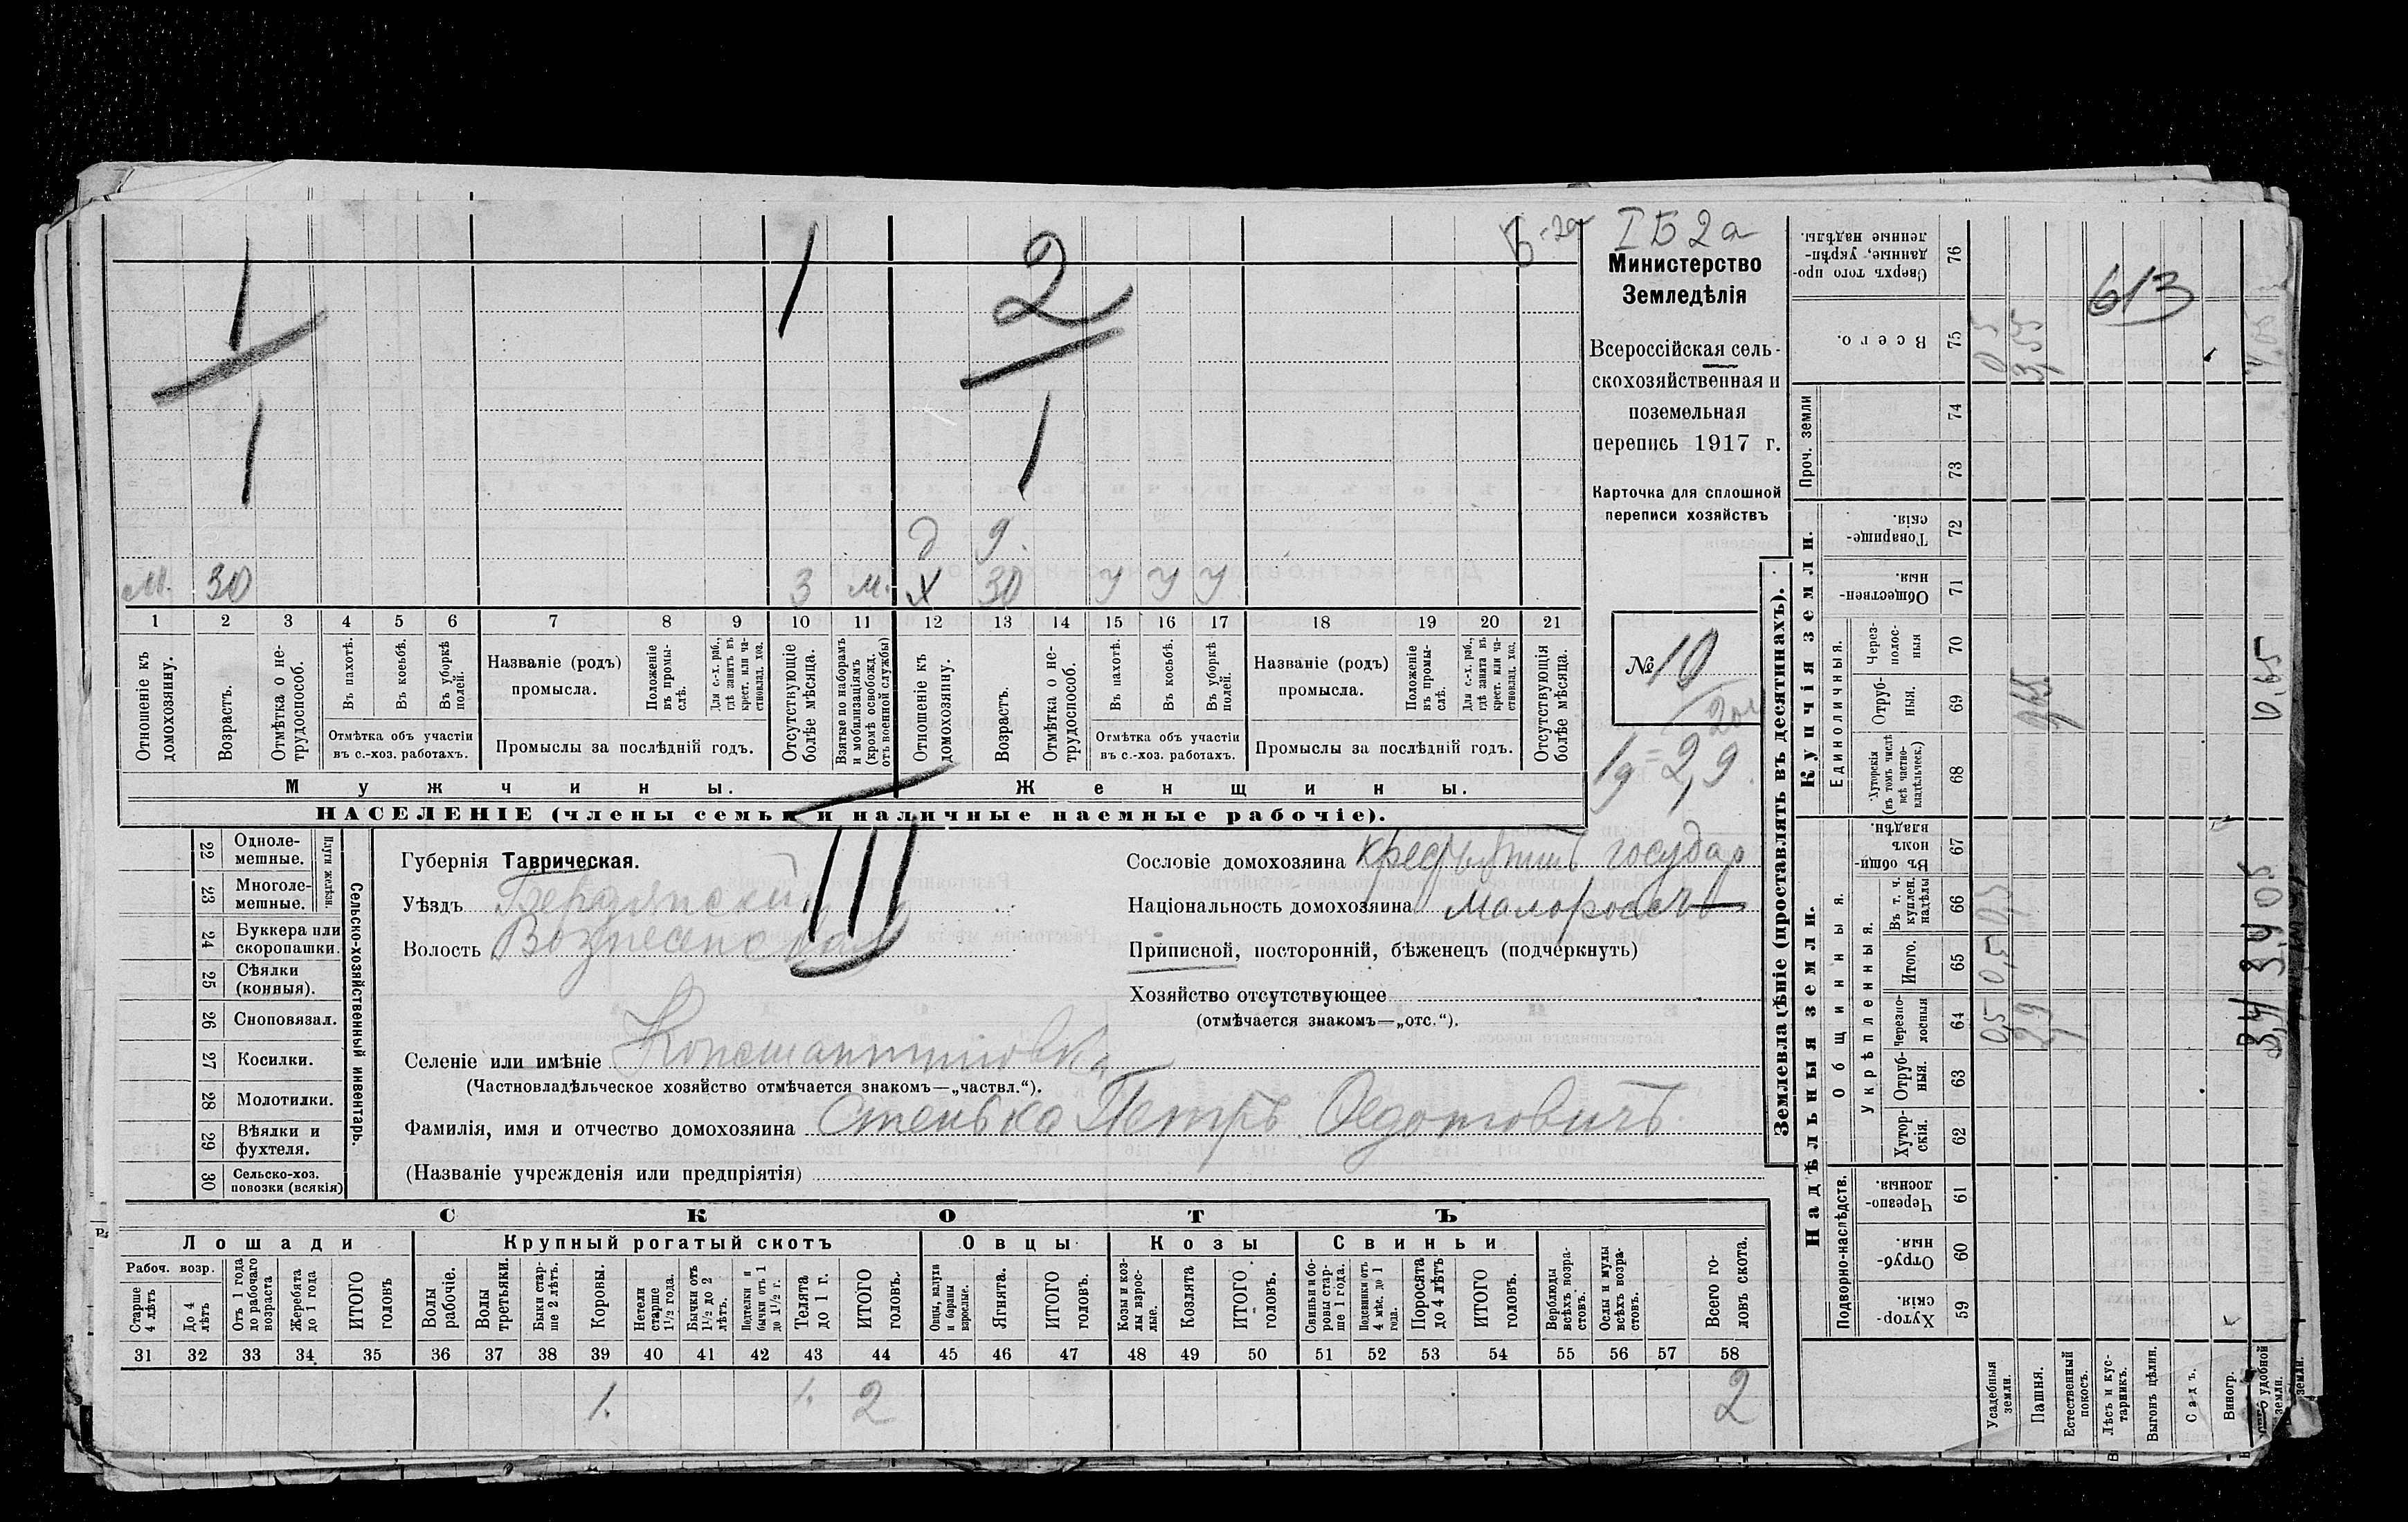 Б-2а
І Б 2 а
Министерство
Земледѣлія
Всероссійская сель-
скохозяйственная и
поземельная
перепись 1917 г.
Карточка для сплошной
переписи хозяйствъ
№ 10
1 1 2
1 1
д 9.
м. 30 3 м. х 30 у у у
1 2 3 4 5 6 7 8 9 10 11 12 13 14 15 16 17 18 19 20 21
Отношеніе къ домохозяину.
Возрастъ.
Отмѣтка о не-трудоспособ.
Въ пахотѣ.
Въ косьбѣ.
Въ уборкѣ полей.
Отмѣтка объ участіи
въ с.-хоз. работахъ.
Названіе (родъ)
промысла.
Положеніе въ промы-слѣ.
Для с.-х. раб., гдѣ занятъ въ крест. или ча-стновлад. хоз.
Промыслы за послѣдній годъ.
Отсутствующіе болѣе мѣсяца.
Взятые по наборамъ и мобилизаціямъ (кромѣ освобожд. отъ военной службы)
Отношеніе къ домохозяину.
Возрастъ.
Отмѣтка о не-трудоспособ.
Въ пахотѣ.
Въ косьбѣ.
Въ уборкѣ полей.
Отмѣтка объ участіи
въ с.-хоз. работахъ.
Названіе (родъ)
промысла.
Положеніе въ промы-слѣ.
Для с.-х. раб., гдѣ занята въ крест. или ча-стновлад. хоз.
Промыслы за послѣдній годъ.
Отсутствующія болѣе мѣсяца.
Мужчины. Женщины.
НАСЕЛЕНІЕ (члены семьи и наличные наемные рабочіе).
1д = 2,9
III
22 Одноле-мешные.
23 Многоле-мешные.
Плуги желѣзн.
24 Буккера или скоропашки.
25 Сѣялки (конныя).
26 Сноповязал.
27 Косилки.
28 Молотилки.
29 Вѣялки и фухтеля.
30 Сельско-хоз. повозки (всякія)
Сельско-хозяйственный инвентарь.
Губернія Таврическая.
Уѣздъ Бердянскій
Волость Вознесенская
Селеніе или имѣніе Константиновка
(Частновладѣльческое хозяйство отмѣчается знакомъ—„частвл.“).
Фамилія, имя и отчество домохозяина Стенька Петръ Федотовичъ
(Названіе учрежденія или предпріятія)
Сословіе домохозяина крестьянинъ государ
Національность домохозяина малороссъ
Приписной, посторонній, бѣженецъ (подчеркнуть)
Хозяйство отсутствующее
(отмѣчается знакомъ—„отс.“).
СКОТЪ
Лошади Крупный рогатый скотъ Овцы Козы Свиньи
Рабоч. возр.
Старше 4 лѣтъ
До 4 лѣтъ
Отъ 1 года до рабочаго возраста
Жеребята до 1 года
ИТОГО головъ
Волы рабочіе.
Волы третьяки.
Быки стар-ше 2 лѣтъ.
Коровы.
Нетели старше 1½ года.
Бычки отъ 1½ до 2 лѣтъ.
Подтелки и бычки отъ 1 до 1½ г.
Телята до 1 г.
ИТОГО головъ.
Овцы, валухи и бараны взрослые.
Ягнята.
ИТОГО головъ.
Козы и коз-лы взрос-лые.
Козлята
ИТОГО головъ.
Свиньи и бо-ровы стар-ше 1 года.
Подсвинки отъ 4 мѣс. до 1 года.
Поросята до 4 лѣтъ
ИТОГО головъ.
Верблюды всѣхъ возра-стовъ.
Ослы и мулы всѣхъ возра-стовъ.
Всего го-ловъ скота.
31 32 33 34 35 36 37 38 39 40 41 42 43 44 45 46 47 48 49 50 51 52 53 54 55 56 57 58
1. 1. 2 2
Землевладѣніе (проставлять въ десятинахъ).
Купчія земли.
Надѣльныя земли.
Сверхъ того про-данные, укрѣп-ленные надѣлы. 76
Всего. 75
Проч. земли 74 73
Товарище-скія. 72
Обществен-ныя. 71
Единоличныя.
Через-полос-ныя 70
Отруб-ныя. 69
Хуторскія (въ томъ числѣ всѣ частно-владѣльческ.) 68
Общинныя.
Въ общин-номъ владѣн. 67
Укрѣпленныя.
Въ т. ч. куплен. надѣлы 66
Итого. 65
Черезпо-лосныя 64
Отруб-ныя. 63
Хутор-скія. 62
Подворно-наслѣдств.
Черезпо-лосныя. 61
Отруб-ныя. 60
Хутор-скія. 59
Усадебныя земли.
Пашня.
Естественный покосъ.
Лѣсъ и кус-тарникъ.
Выгонъ цѣлин.
Садъ.
Виногр.
удобной земли.
земли.
613
0,5
3,55
0,65
0,5 0,5
2,9
0,65
3,4